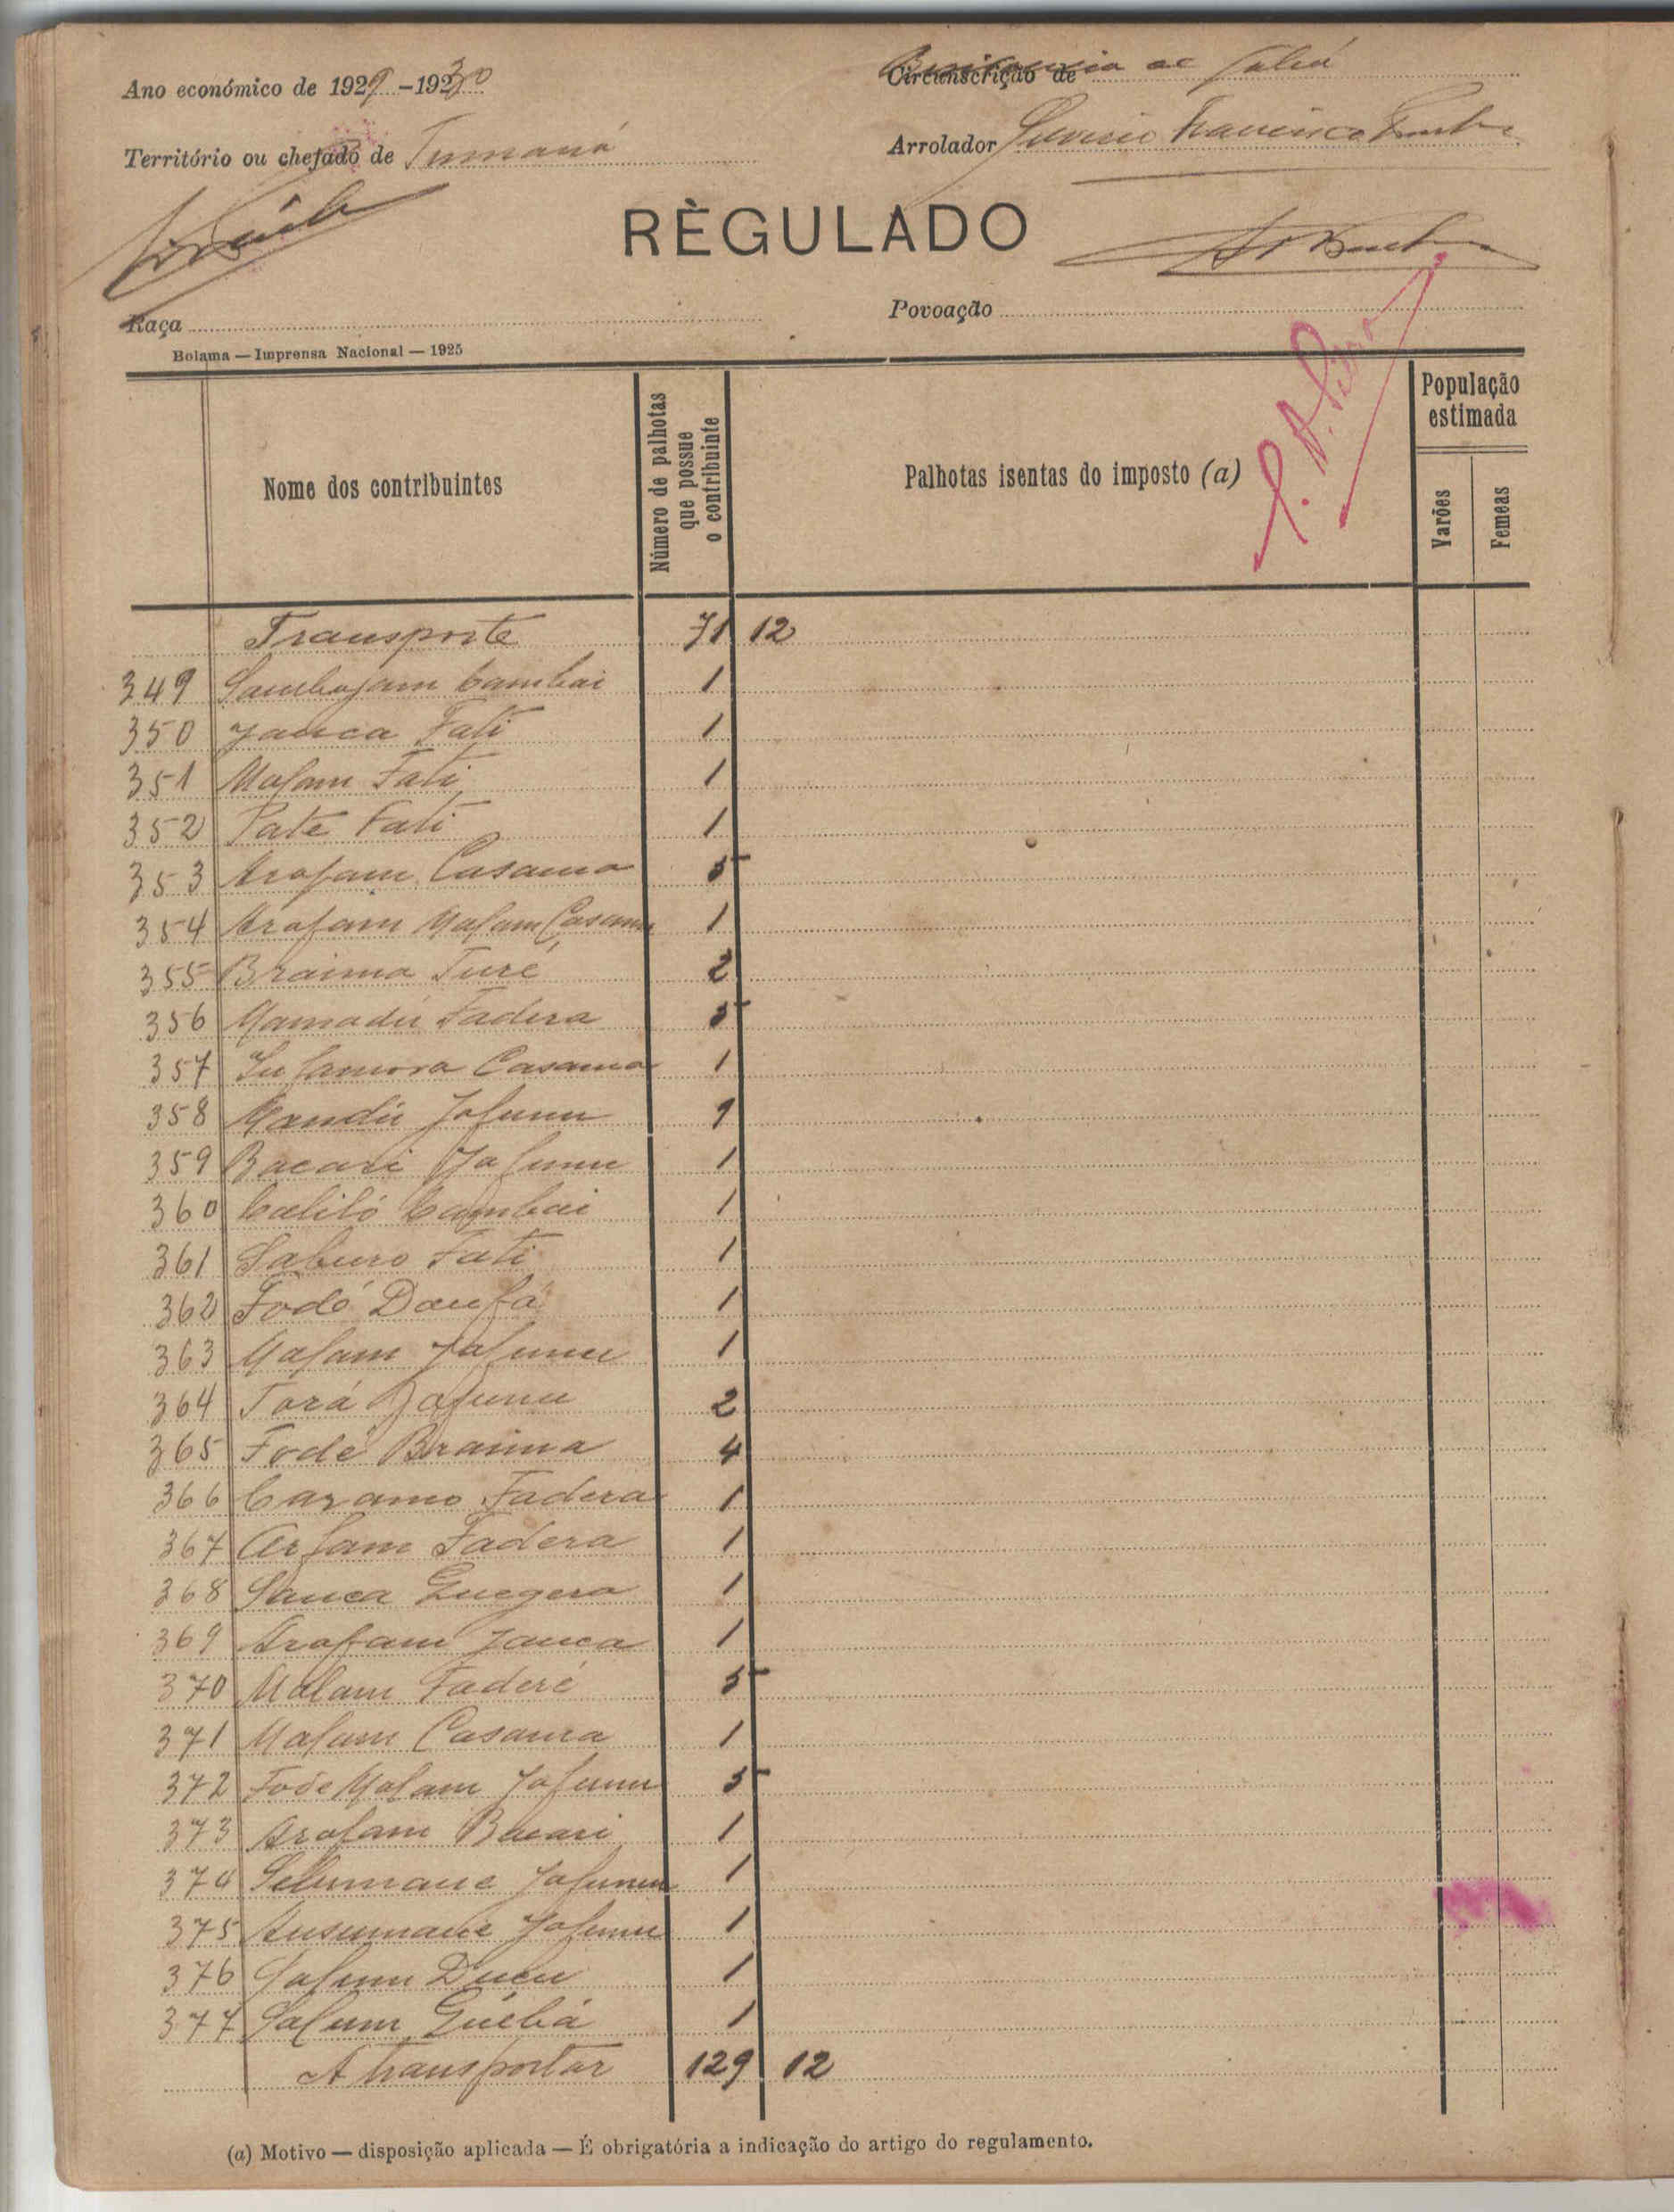 Ano económico de 1929-1930
Circunscrição de
Território ou chefado de Tumaná
Arrolador Francisco
RÈGULADO
Raça
Povoação
Bolama — Imprensa Nacional — 1925
Nome dos contribuintes
Número de palhotas que possue o contribuinte
Palhotas isentas do imposto (a)
População estimada
Varões
Femeas
Transporte 71 12
349 Cambai 1
350 Janca Fati 1
351 Malam Fati 1
352 Pate Fati 1
353 Arafam Casama 5
354 Arafam Malam Casama 1
355 Braima Turé 2
356 Mamadú Fadera 5
357 Casama 1
358 Mandú Jafunu 9
359 Bacari Jafunu 1
360 Calilo Cambai 1
361 Fati 1
362 Fodé Danfá 1
363 Malam Jafunu 1
364 Jafunu 2
365 Fodé Braima 4
366 Caramo Fadera 1
367 Arfam Fadera 1
368 Sanca 1
369 Arafam Janca 1
370 Malam Faderé 5
371 Malam Casama 1
372 Fode Malam Jafunu 5
373 Arafam Bacari 1
374 Jafunu 1
375 Ansumane Jafunu 1
376 Jafunu 1
377 1
A transportar 129 12
(a) Motivo — disposição aplicada — É obrigatória a indicação do artigo do regulamento.